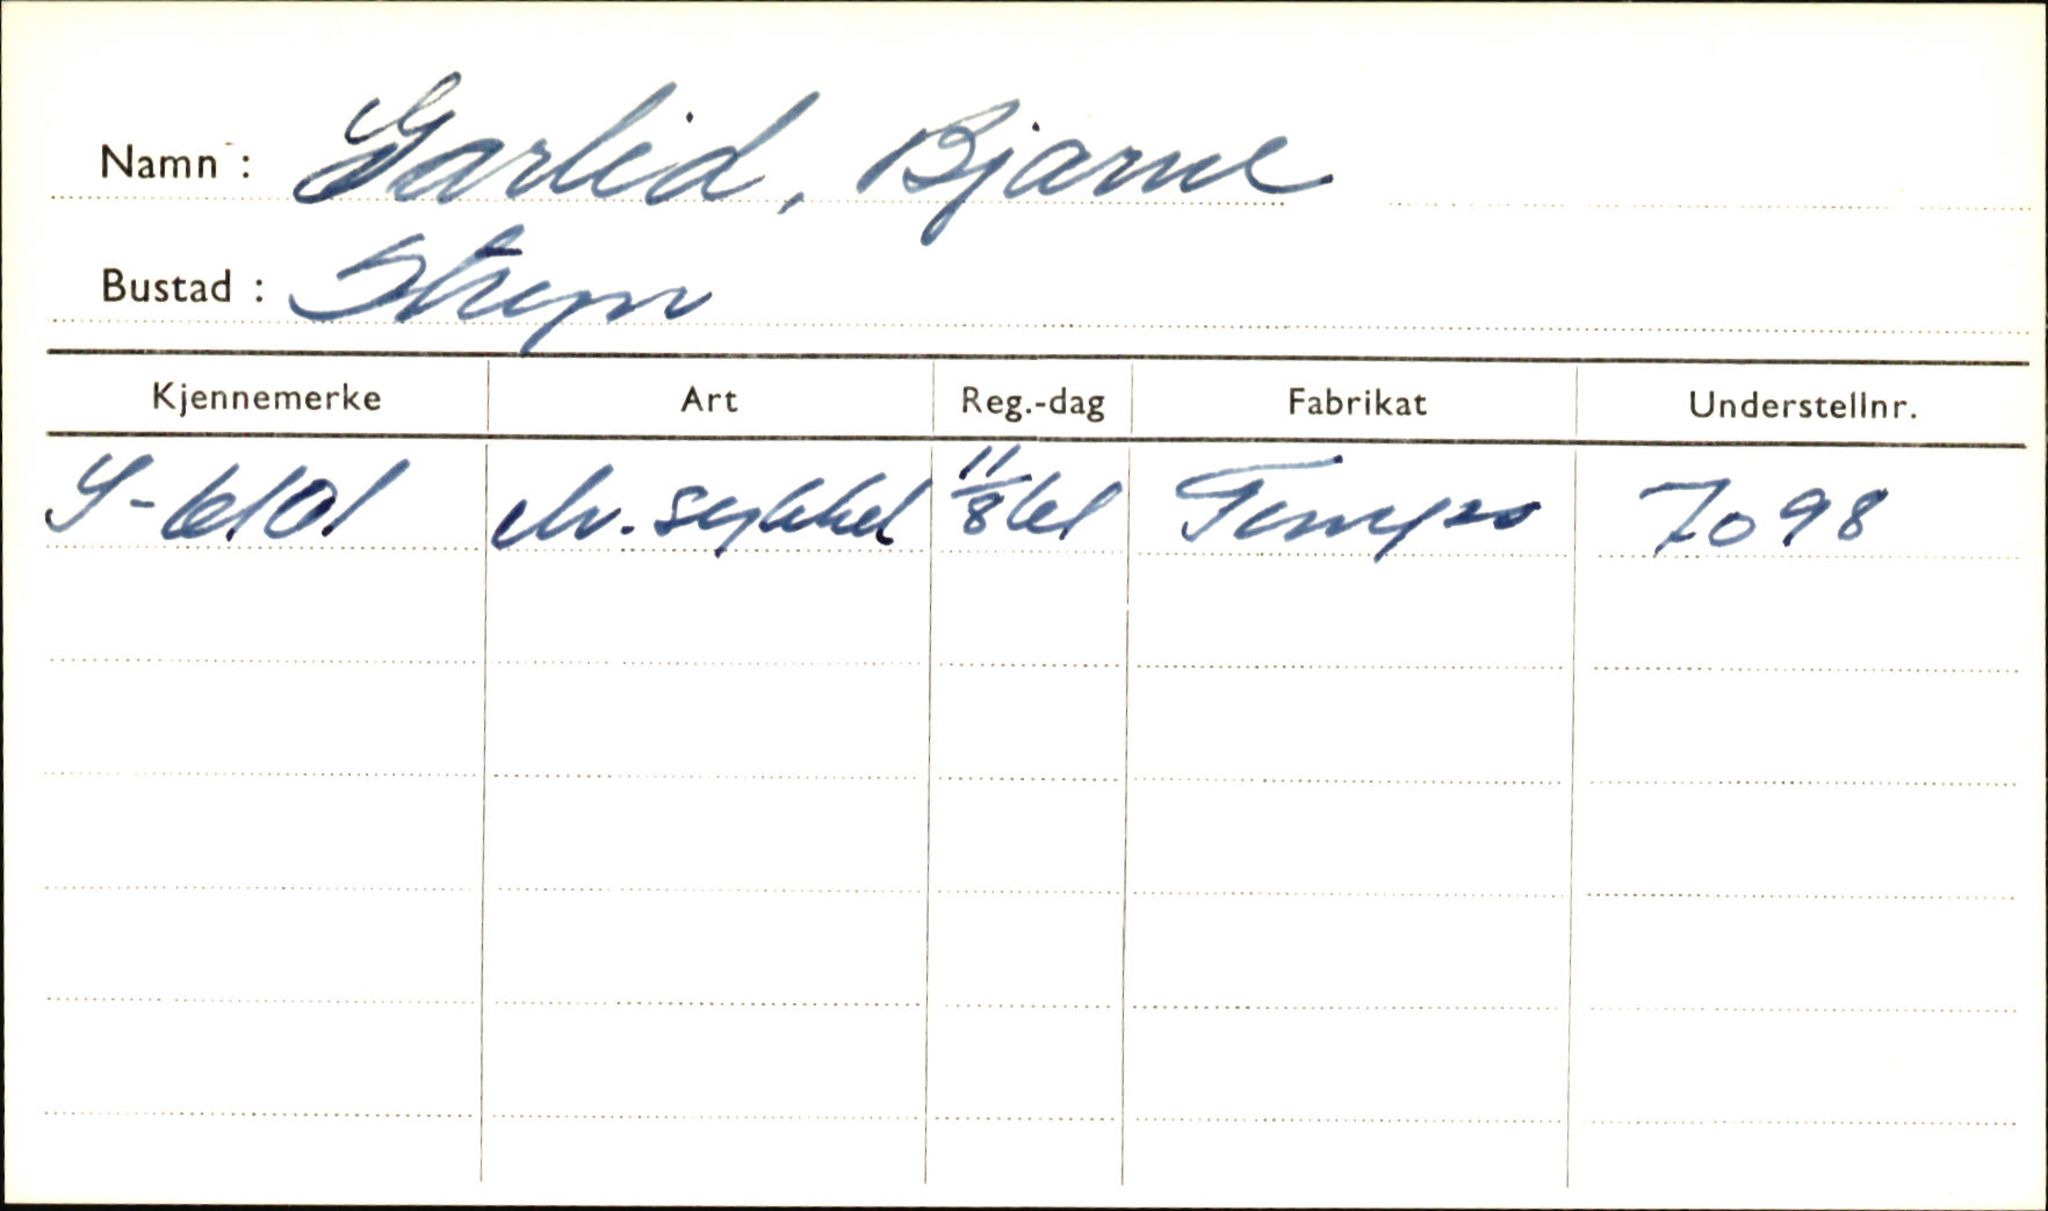 Namn : Garlid, Bjarne
Bustad : Stryn
Kjennemerke Art Reg.-dag Fabrikat Understellnr.
S-6101 M. sykkel 11/8 61 Tempo 7098